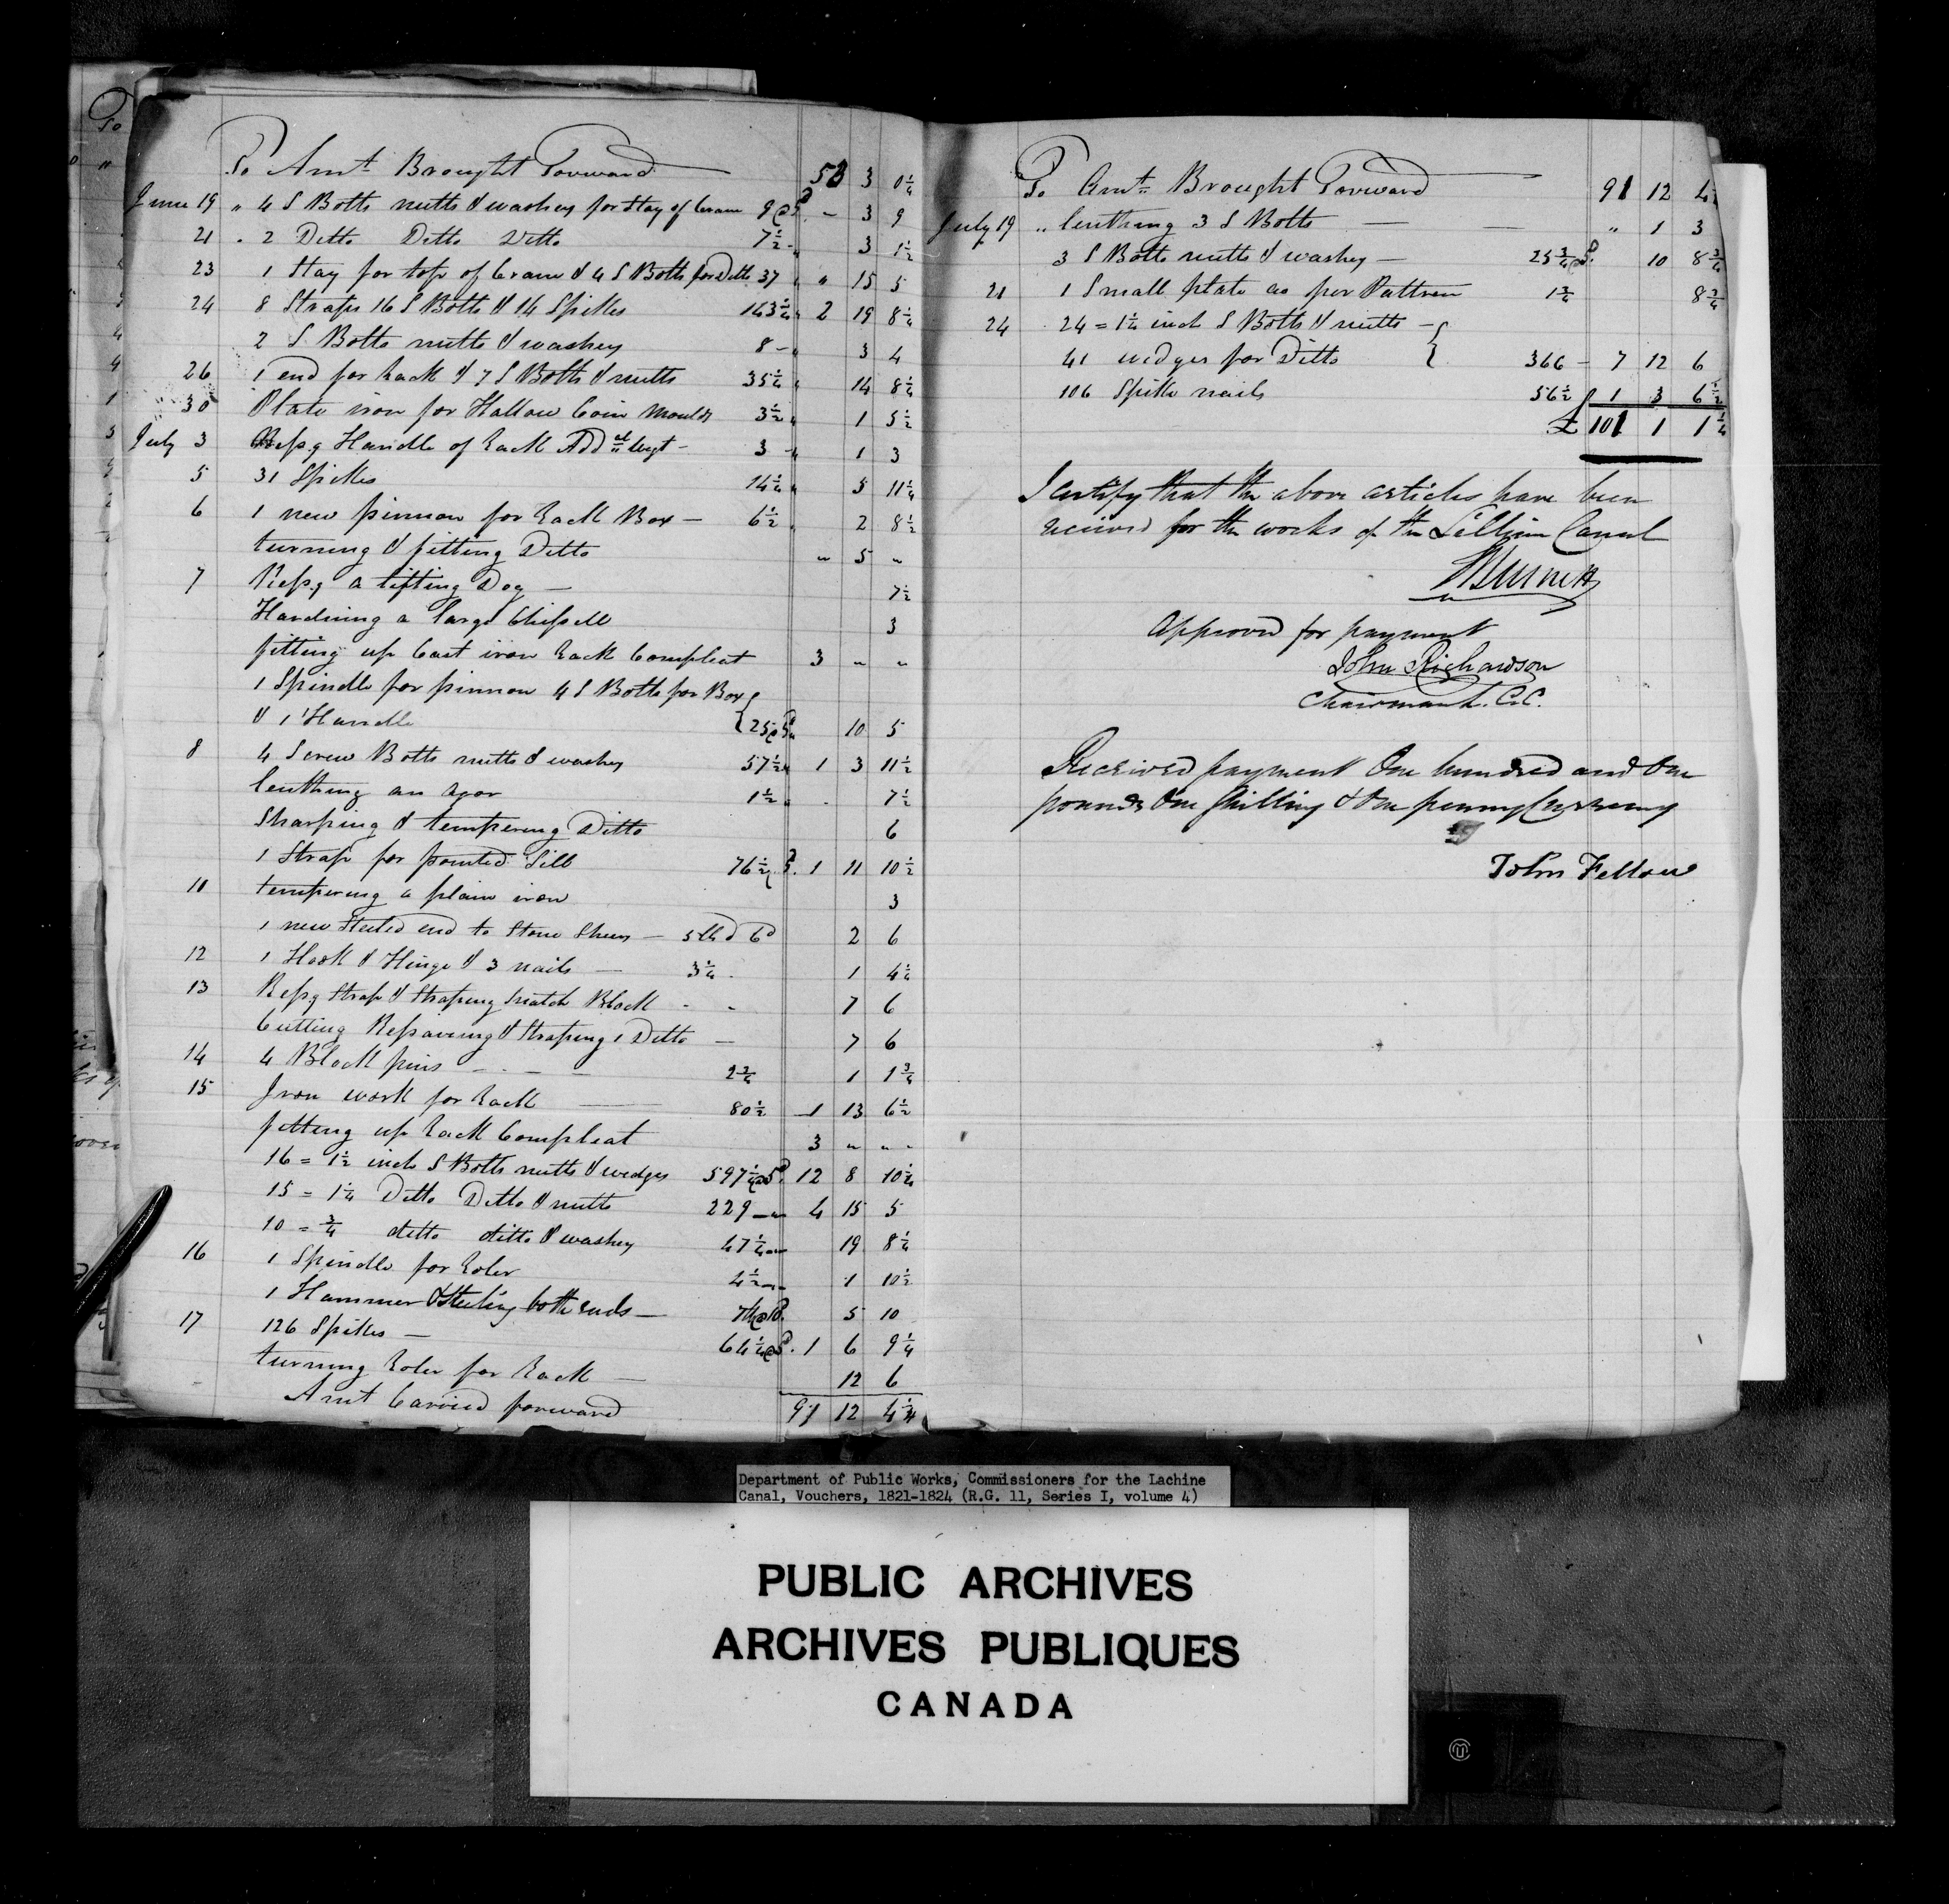 To Amt Brought Forward 53 3 0 1/4
June 19 " 4 S Bolts nutts & washey for Stay of Crane 9 @ 5d. - 3 9
21 " 2 Ditto Ditto Ditto 7 1/2 - 3 1 1/2
23 1 Stay for top of Crane & 4 S Bolts for Ditto 37 " " 15 5
24 8 Straps 16 S Bolts & 14 Spikes 143 1/4 " 2 19 8 1/4
2 S Bolts nutts & washey 8 - " 3 4
26 1 end for Rack & 7 S Bolts & nutts 35 1/4 " 14 8 1/4
30 Plate iron for Hallow Coin Moulds 3 1/2 " 1 5 1/2
July 3 Repg Handle of Rack Addal wgt - 3 " 1 3
5 31 Spikes 14 1/4 " 5 11 1/4
6 1 new pinnon for Rack Box - 6 1/2 " 2 8 1/2
turning & fitting Ditto " 5 "
7 Repg a lifting Dog - 7 1/2
Hardning a large Chissell 3
fitting up Cast iron Rack Compleat 3 " "
1 Spindle for pinnon 4 S Bolts for Box
& 1 Handle } 25 @ 5d " 10 5
8 4 Screw Bolts nutts & washey 57 1/2 " 1 3 11 1/2
lenthing an agor 1 1/2 " . 7 1/2
Sharping & tempering Ditto 6
1 Strap for pointed Sill 76 1/2 @ 5d. 1 11 10 1/2
10 tempering a plain iron 3
1 new Steeled end to Stone Shears - 5 lb @ 6d 2 6
12 1 Hook & Hinge & 3 nails - 3 1/4 - 1 4 1/4
13 Repg Strap & Straping Snatch Block - - 7 6
Cutting Repairing & Straping 1 Ditto - 7 6
14 4 Block pins - - - 2 3/4 1 1 3/4
15 Iron work for Rack - 80 1/2 1 13 6 1/2
fitting up Rack Compleat 3 " "
16 = 1 1/2 inch S Bolts nutts & wedges 597 1/4 @ 5d. 12 8 10 1/4
15 = 1 1/4 Ditto Ditto & nutts 229 - " 4 15 5
10 = 3/4 ditto ditto & washey 47 1/4 - " 19 8 1/4
16 1 Spindle for Roler 4 1/2 - " 1 10 1/2
1 Hammer & Steeling both ends - 7 lb @ 10d. 5 10
17 126 Spikes - 64 1/4 @ 5d. 1 6 9 1/4
turning Roler for Rack - 12 6
Amt Carried forward 91 12 4 3/4
To Amt Brought Forward 91 12 4
July 19 " lenthing 3 S Bolts - " 1 3
3 S Bolts nutts & washey - 25 3/4 @ 5d. 10 8 3/4
21 1 Small plate as per Pattren 1 3/4 8 3/4
24 24 = 1 1/4 inch S Bolts & nutts - {
41 wedges for Ditto } 366 - 7 12 6
106 Spike nails 56 1/2 1 3 6 1/2
£ 101 1 1 1/4
I certify that the above articles have been
received for the works of the Lachine Canal
Approved for payment
John Richardson
Chairman L.C.C.
Received payment One hundred and One
pounds One Shilling & One penny Currency
John Fellow
Department of Public Works, Commissioners for the Lachine
Canal, Vouchers, 1821-1824 (R.G. 11, Series I, volume 4)
PUBLIC ARCHIVES
ARCHIVES PUBLIQUES
CANADA